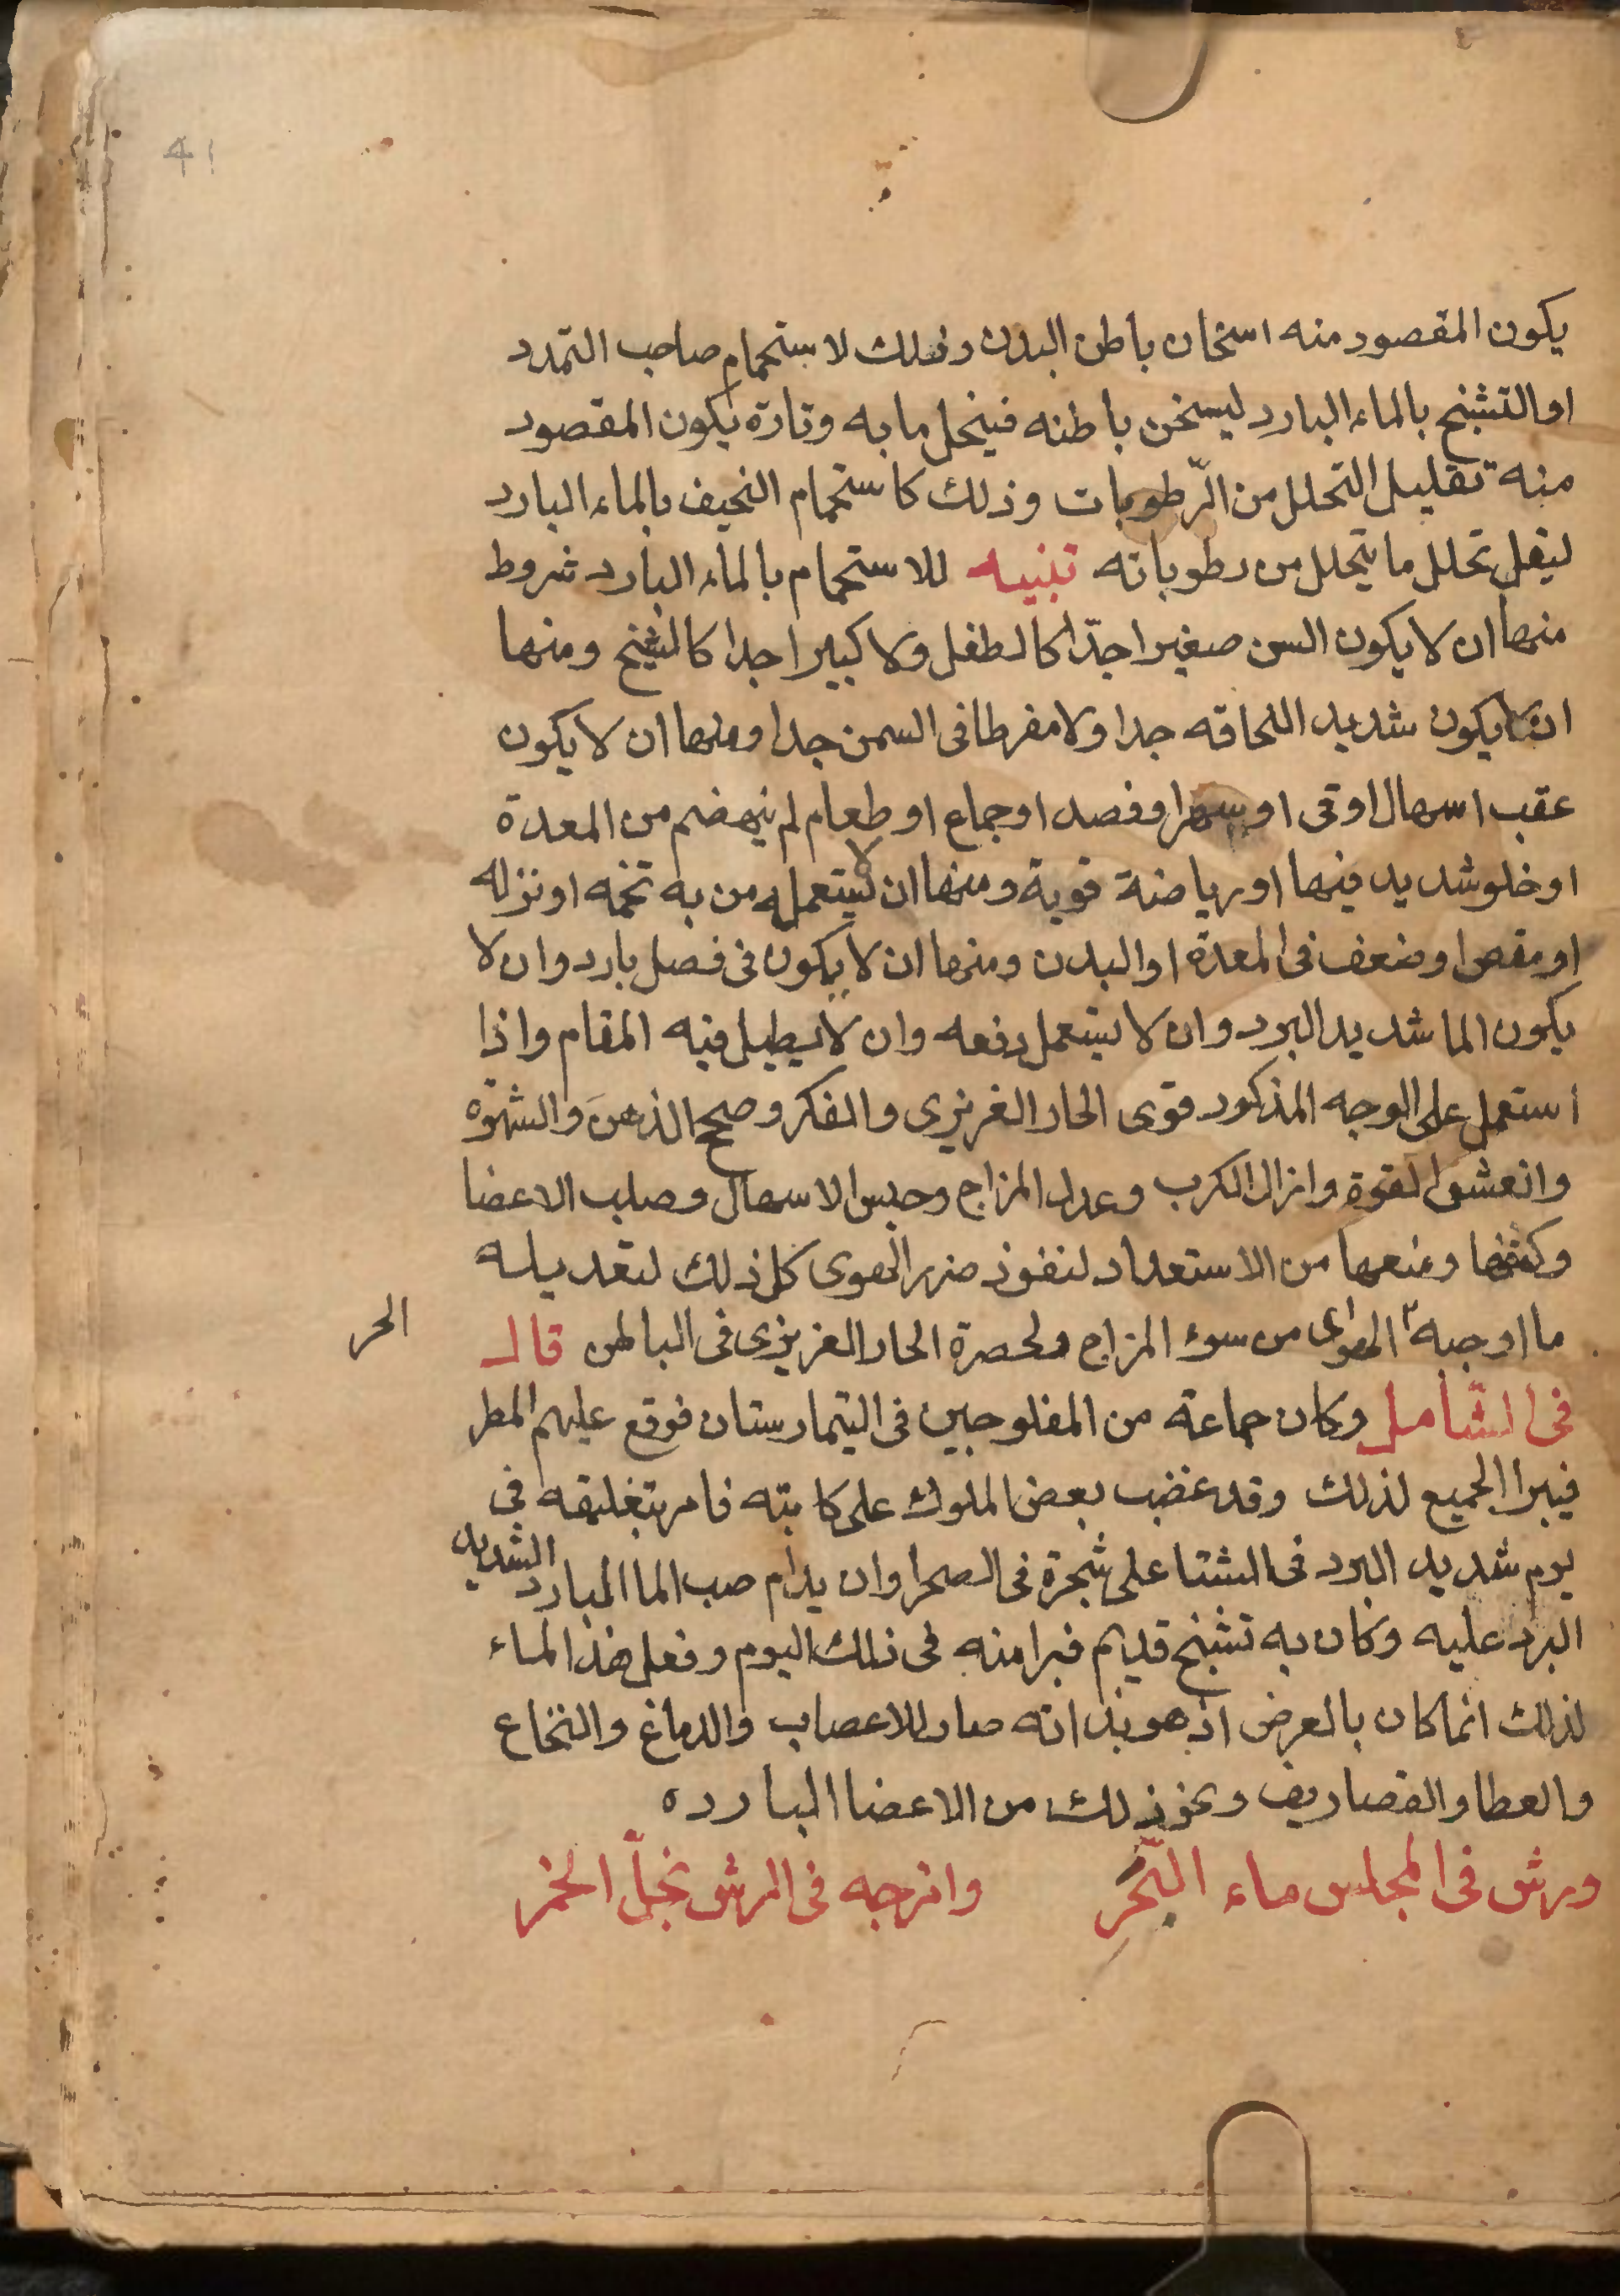 41
يكون المقصود منه اسخان باطن البدن وذلك لاستحمام صاحب التمدد
او التشنج بالماء البارد ليسخن باطنه فينحل ما به وتارة يكون المقصود
منه تقليل التحلل من الرّطوبات وذلك كاستحمام النحيف بالماء البارد
ليقل تحلل ما يتحلل من رطوباته تنبيه للاستحمام بالماء البارد شروط
منها ان لا يكون السن صغيرا جدّا كالطفل ولا كبيرا جدا كالشيخ ومنها
ان لا يكون شديد النحافه جدا ولا مفرطا فى السمن جدا ومنها ان لا يكون
عقب اسهال او قى او سهر او فصد او جماع او طعام لم ينهضم من المعدة
او خلو شديد فيها او رياضة قوية ومنها ان لا يستعمله من به تخمه او نزله
او مغص او ضعف فى المعدة او البدن ومنها ان لا يكون فى فصل بارد وان لا
يكون الما شديد البرد وان لا يستعمل دفعه وان لا يطيل فيه المقام واذا
استعمل على الوجه المذكور قوى الحار الغريزى والفكر وصحح الذهن والشهوة
وانعش القوة وازال الكرب وعدل المزاج وحبس الاسهال وصلب الاعضا
وكثفها ومنعها من الاستعداد لنفوذ ضرر الهوى كل ذلك لتعديله
ما اوجبه الهوا من سوء المزاج ولحصرة الحار الغريزى فى الباطن قال
الحر
فى الشامل وكان جماعة من المفلوجين فى اليتمارستان فوقع عليهم المطر
فبرا الجميع لذلك وقد غضب بعض الملوك على كاتبه فامر بتغليقه فى
يوم شديد البرد فى الشتا على شجرة فى الصحرا وان يدام صب الما البارد الشديد
البرد عليه وكان به تشنج قديم فبرا منه فى ذلك اليوم وفعل هذا الماء
لذلك انما كان بالعرض اذ هو بذاته ضار للاعصاب والدماغ والنخاع
والعظا والقصاريف ونحو ذلك من الاعضا البارده
ورش فى المجلس ماء البَحْر وامزجه فى الرش بخلّ الخمر